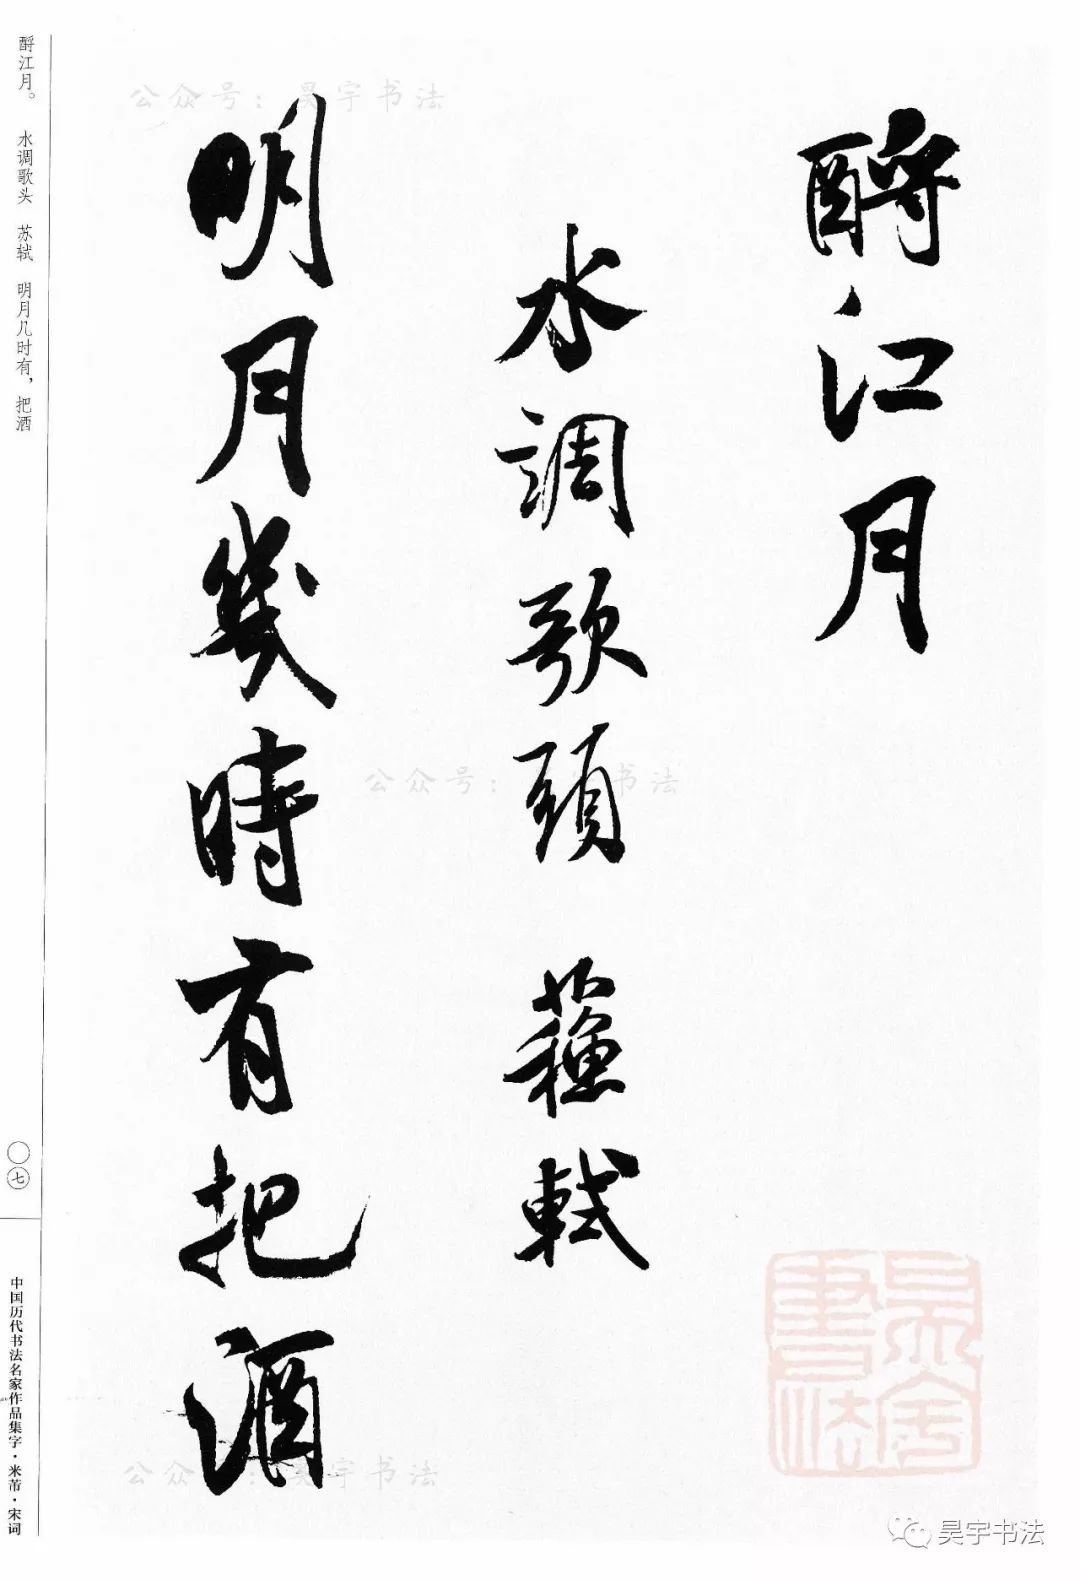 酹江月
水調歌頭 蘇軾
明月幾時有把酒
酹江月。 水调歌头 苏轼 明月几时有，把酒
〇七
中国历代书法名家作品集字·米芾·宋词
公众号：昊宇书法
公众号：书法
公众号：昊宇书法
昊宇書法
昊宇书法